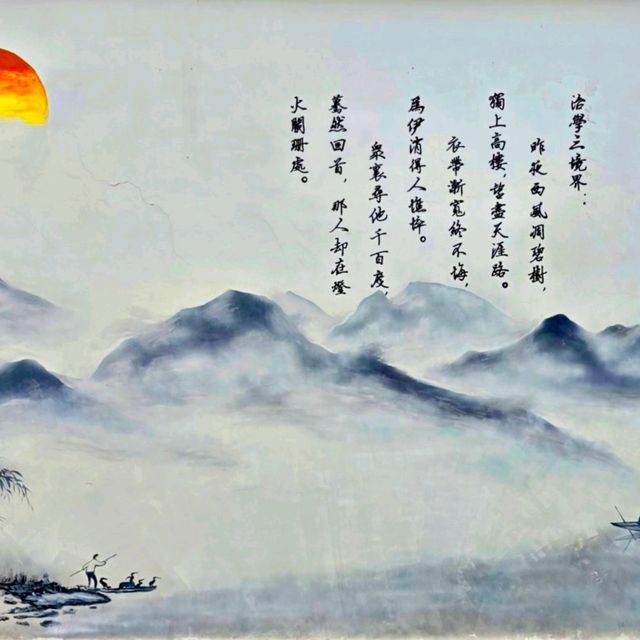 治學三境界：
昨夜西風凋碧樹，
獨上高樓，望盡天涯路。
衣帶漸寬終不悔，
為伊消得人憔悴。
衆裏尋他千百度，
驀然回首，那人卻在燈
火闌珊處。